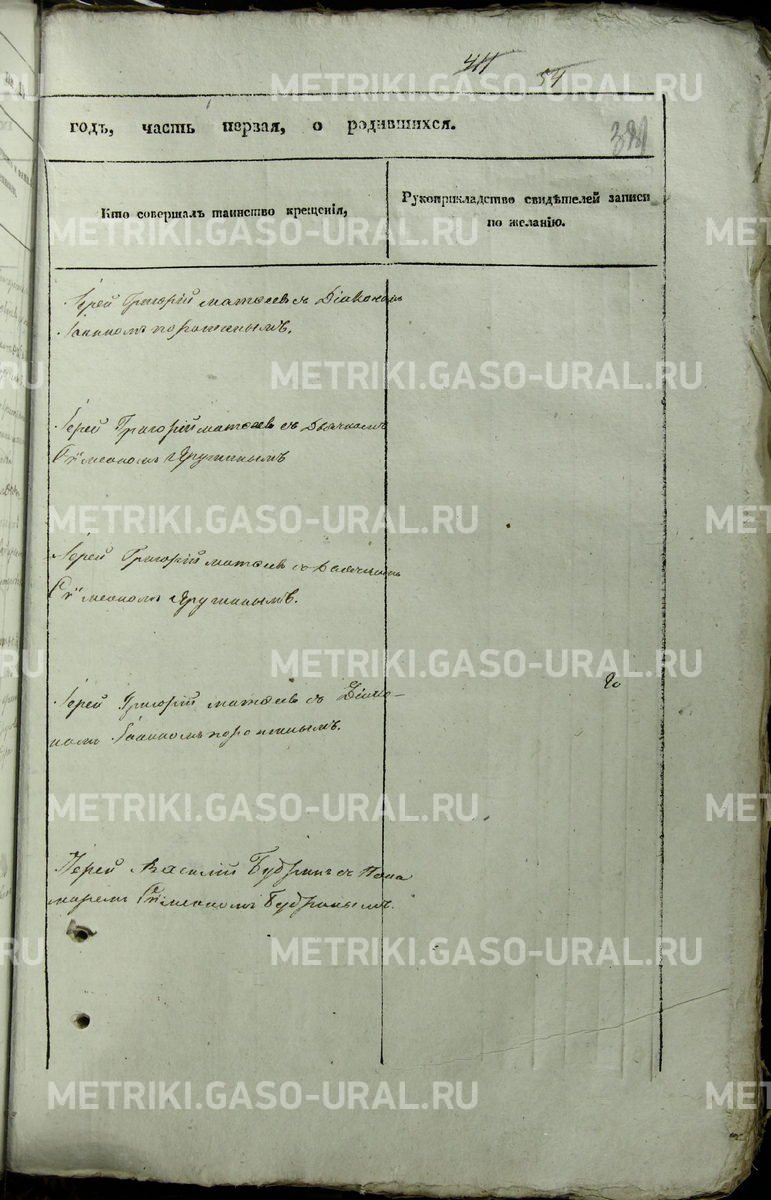 411 54
годъ, часть первая, о родившихся.
Кто совершалъ таинство крещенія,
Рукоприкладство свидѣтелей записи
по желанію.
Іерей Григорій Матѳеевъ съ Діакономъ
Іоанномъ
Іерей Григорій Матѳеевъ съ Дьячкомъ
Сѵмеономъ
Іерей Григорій Матѳеевъ съ Дьячкомъ
Сѵмеономъ
Іерей Григорій Матѳеевъ съ Діако-
номъ Іоанномъ
Іерей Василій Будринъ съ Пона
маремъ Сѵмеономъ Будринымъ.
METRIKI.GASO-URAL.RU